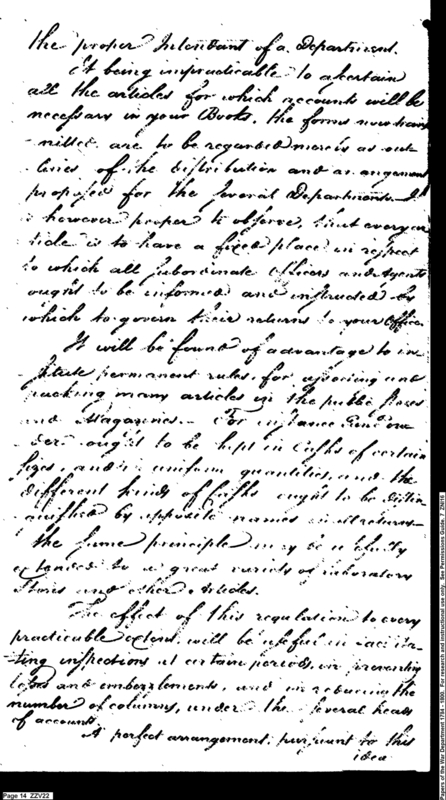 the proper Intendant of a Department.
It being impracticable to ascertain
all the articles for which accounts will be
necessary in your Books, the forms now trans
mitted, are to be regarded merely as out
lines of the distribution and arrangement
proposed for the several Departments. It
is however proper to observe, that every ar
ticle is to have a fixed place in respect
to which all subordinate Officers and Agents
ought to be informed and instructed by
which to govern their returns to your Office
It will be found of advantage to in
stitute permanent rules, for assorting and
packing many articles in the public Stores
and Magazines. For instance Gunpow
der ought to be kept in Casks of certain
sizes, and in uniform quantities, and the
different kinds of Casks ought to be distin
guished by apposite names in all returns
the same principle may be usefully
extended to a great variety of laboratory
Stores and other Articles.
The effect of this regulation to every
practicable extent, will be useful in facilita
ting inspections at certain periods, in preventing
losses and embezzlements, and in reducing the
number of columns, under the several heads
of account.
A perfect arrangement, pursuant to this
idea
Page 14 ZZV22
Papers of the War Department 1784 - 1800. For research and instructional use only. See Permissions Guide.